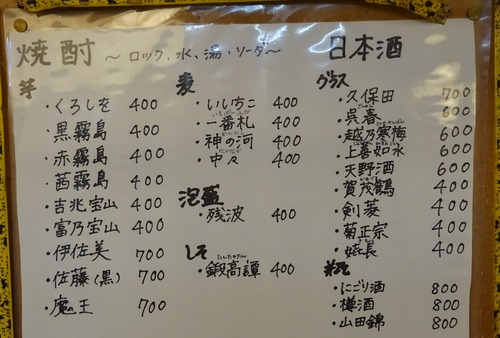 焼酎 〜ロック、水、湯・ソーダ〜
芋
・くろしを 400
・黒霧島 400
・赤霧島 400
・茜霧島 400
・吉兆宝山 400
・富乃宝山 400
・伊佐美 700
・佐藤(黒) 700
・魔王 700
麦
・いいちこ 400
・一番札 400
・神の河 400
・中々 400
泡盛
・残波 400
しそ
・鍛高譚 400
日本酒
グラス
・久保田 700
・呉春 600
・越乃寒梅 600
・上善如水 600
・天野酒 600
・賀茂鶴 400
・剣菱 400
・菊正宗 400
・娆長 400
・にごり酒 800
・樽酒 800
・山田錦 800